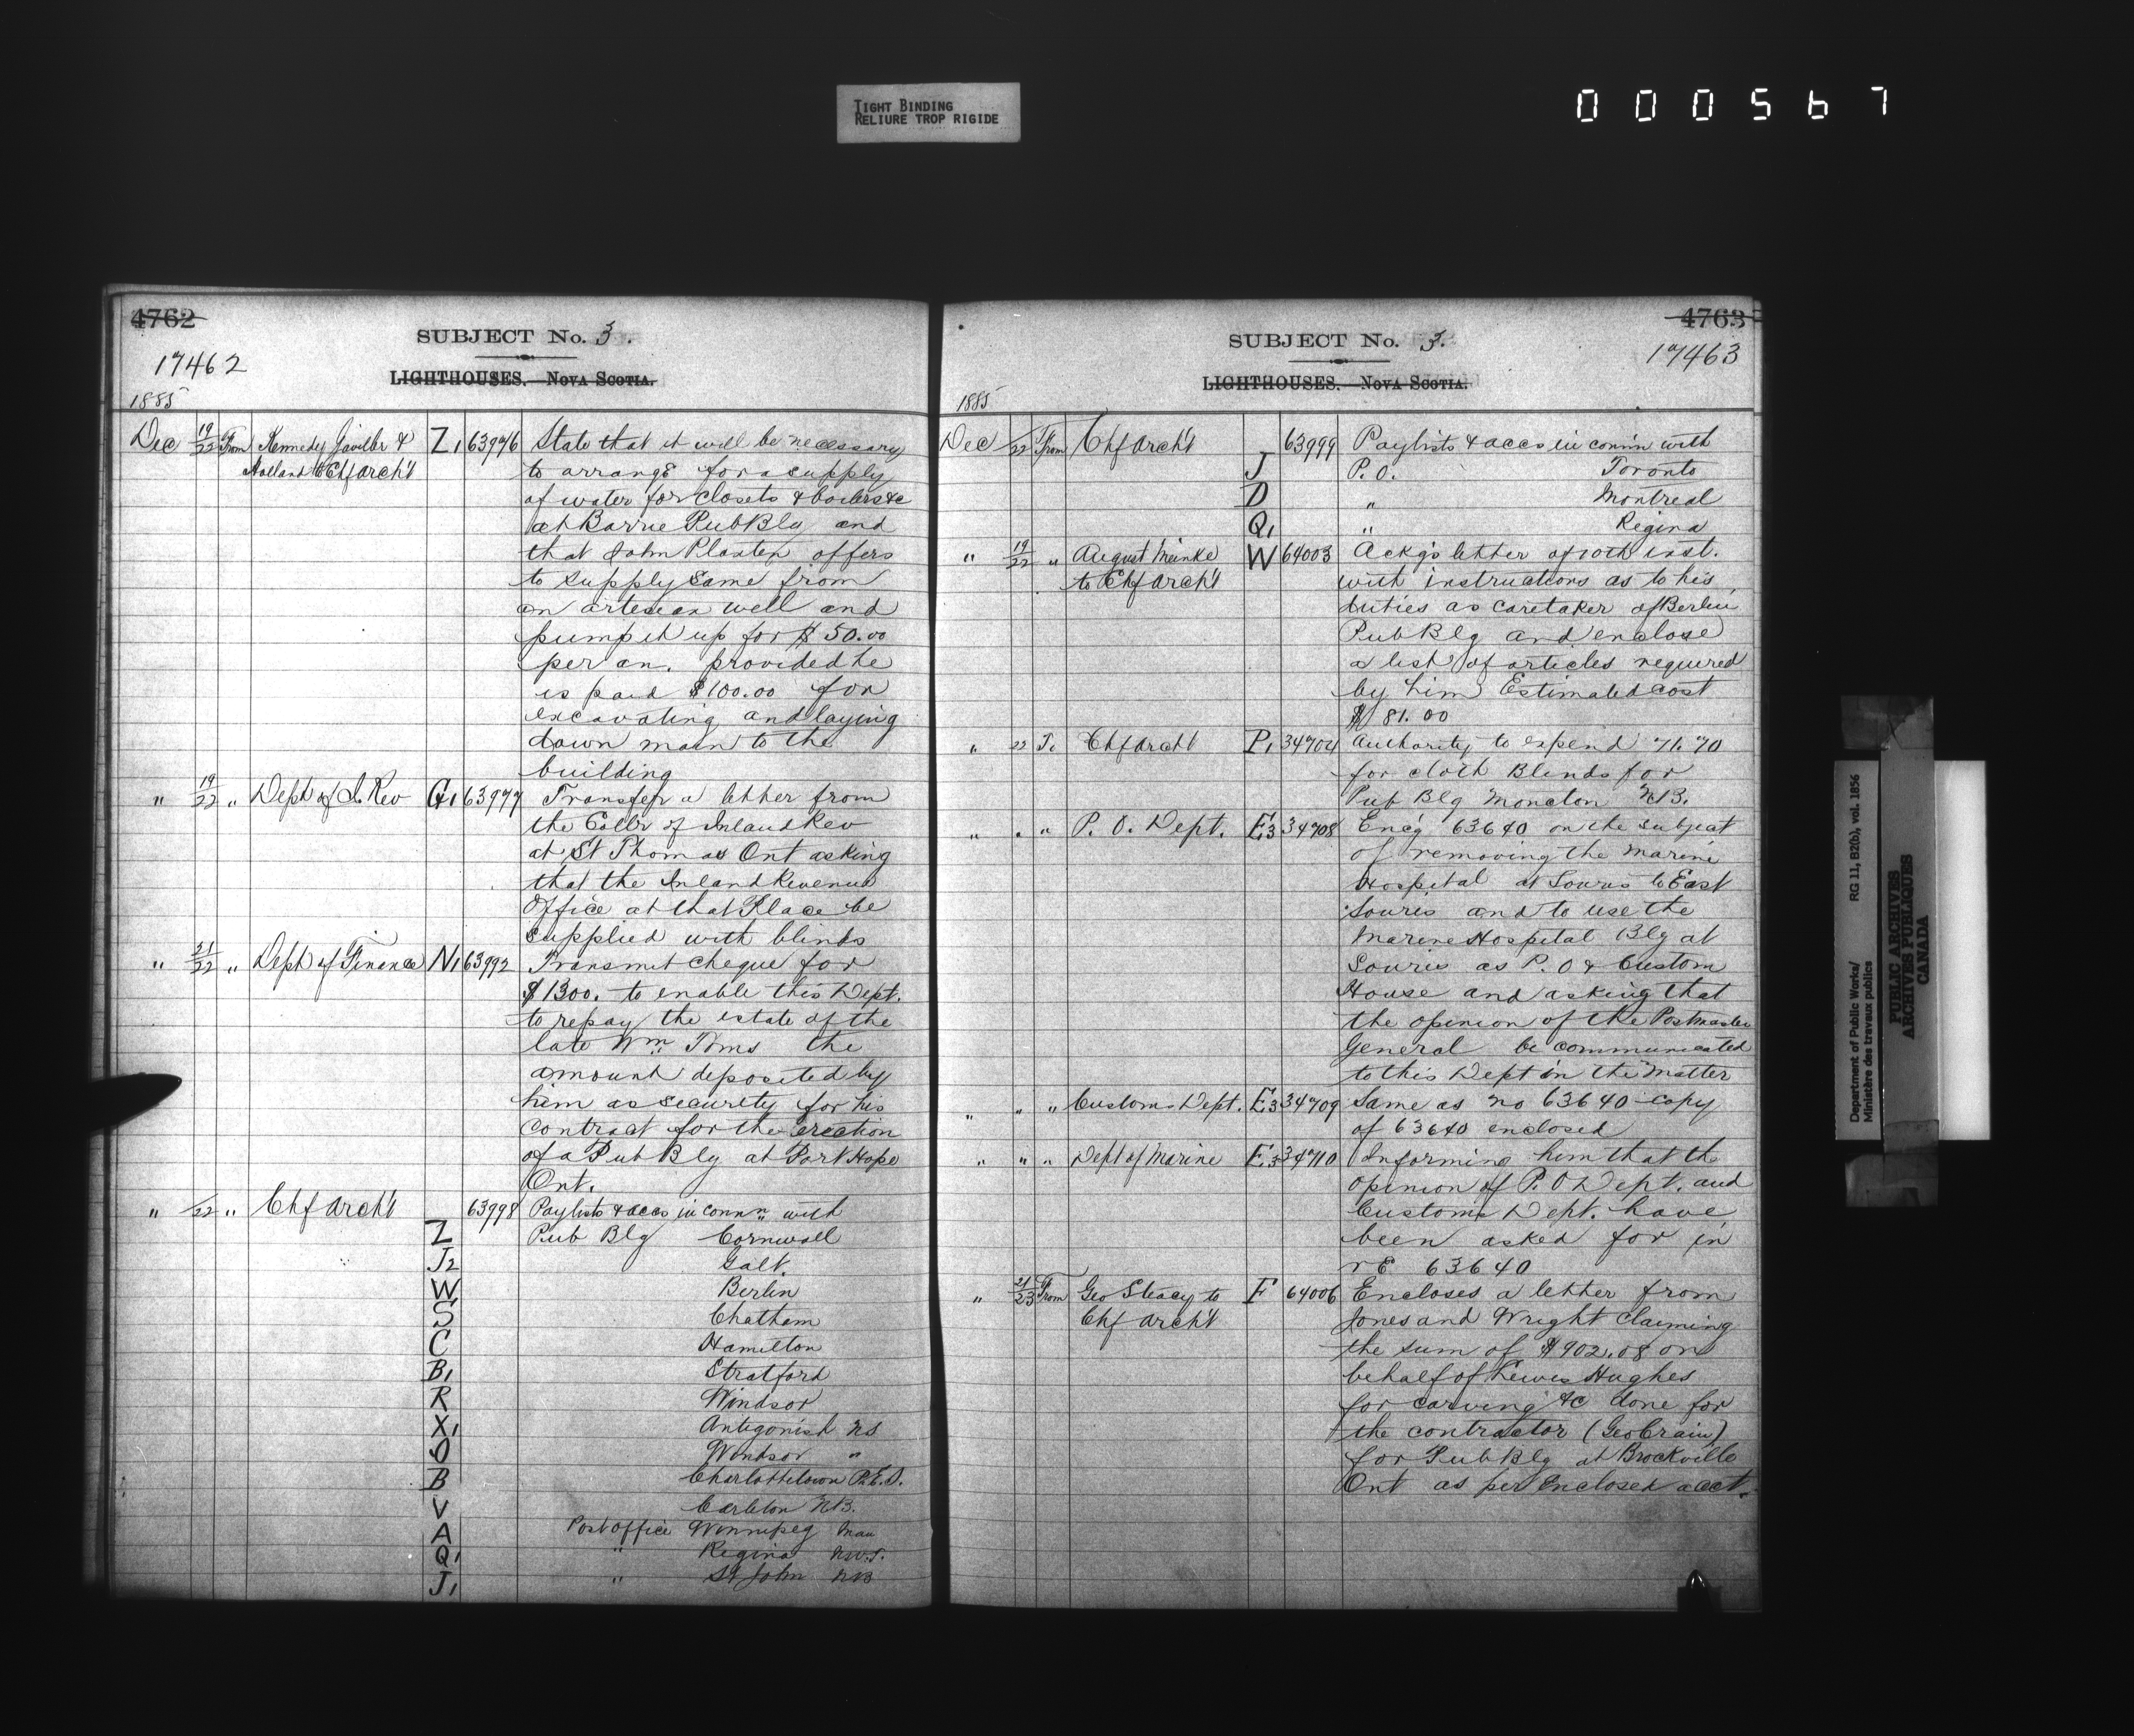 TIGHT BINDING
RELIURE TROP RIGIDE
000567
4762
SUBJECT No. 3.
17462
LIGHTHOUSES. NOVA SCOTIA.
1885
Dec 19/22 From Kennedy Gaviller & Z1 63976 State that it will be necessary
Holland to Chf Arch't to arrange for a supply
of water for closets & boilers &c
at Barrie Pub Blg and
that John Plaxten offers
to supply same from
an artesian well and
pump it up for $50.00
per an. provided he
is paid $100.00 for
excavating and laying
down main to the
building
" 19/22 " Dept of I. Rev G1 63977 Transfer a letter from
the Collr of Inland Rev
at St Thomas Ont asking
that the Inland Revenue
Office at that Place be
supplied with blinds
" 21/22 " Dept of Finance N1 63992 Transmit cheque for
$1300. to enable this Dept.
to repay the estate of the
late Wm Toms the
amount deposited by
him as security for his
contract for the erection
of a Pub Blg at Port Hope
Ont.
" /22 " Chf Arch't 63998 Paylists & accs in connn with
Z Pub Blg Cornwall
J2 Galt.
W Berlin
S Chatham
C Hamilton
B1 Stratford
R Windsor
X1 Antigonish NS
O Windsor "
B Charlottetown P.E.I.
V Carleton NB.
A Post Office Winnipeg Man
Q1 " Regina N.W.T.
J1 " St John NB
4763
SUBJECT No. 3.
17463
LIGHTHOUSES. NOVA SCOTIA.
1885
Dec /22 From Chf Arch't 63999 Paylists & accs in conn'n with
J P.O. Toronto
D " Montreal
Q1 " Regina
" 19/22 " August Meinke W 64003 Ackg's letter of 10th inst.
to Chf Arch't with instructions as to his
duties as caretaker of Berlin
Pub Blg and enclose
a list of articles required
by him Estimated cost
$81.00
" 22 To Chf Arch't P1 34704 Authority to expend 71.70
for cloth Blinds for
Pub Blg Moncton N.B.
" " " P. O. Dept. E3 34708 Enc'g 63640 on the subject
of removing the Marine
Hospital at Souris to East
Souris and to use the
Marine Hospital Blg at
Souris as P.O & Custom
House and asking that
the opinion of the Postmaster
General be communicated
to this Dept in the Matter
" " " Customs Dept. E3 34709 Same as no 63640 copy
of 63640 enclosed
" " " Dept of Marine E3 34710 Informing him that the
opinion of P.O Dept. and
Customs Dept. have
been asked for in
re 63640
" 21/23 From Geo Steacy to F 64006 Encloses a letter from
Chf Arch't Jones and Wright claiming
the sum of $902.08 on
behalf of Lewis Hughes
for carving &c done for
the contractor (Geo Crain)
for Pub Blg at Brockville
Ont as per Enclosed acct.
Department of Public Works/ RG 11, B2(b), vol. 1856
Ministère des travaux publics
PUBLIC ARCHIVES
ARCHIVES PUBLIQUES
CANADA